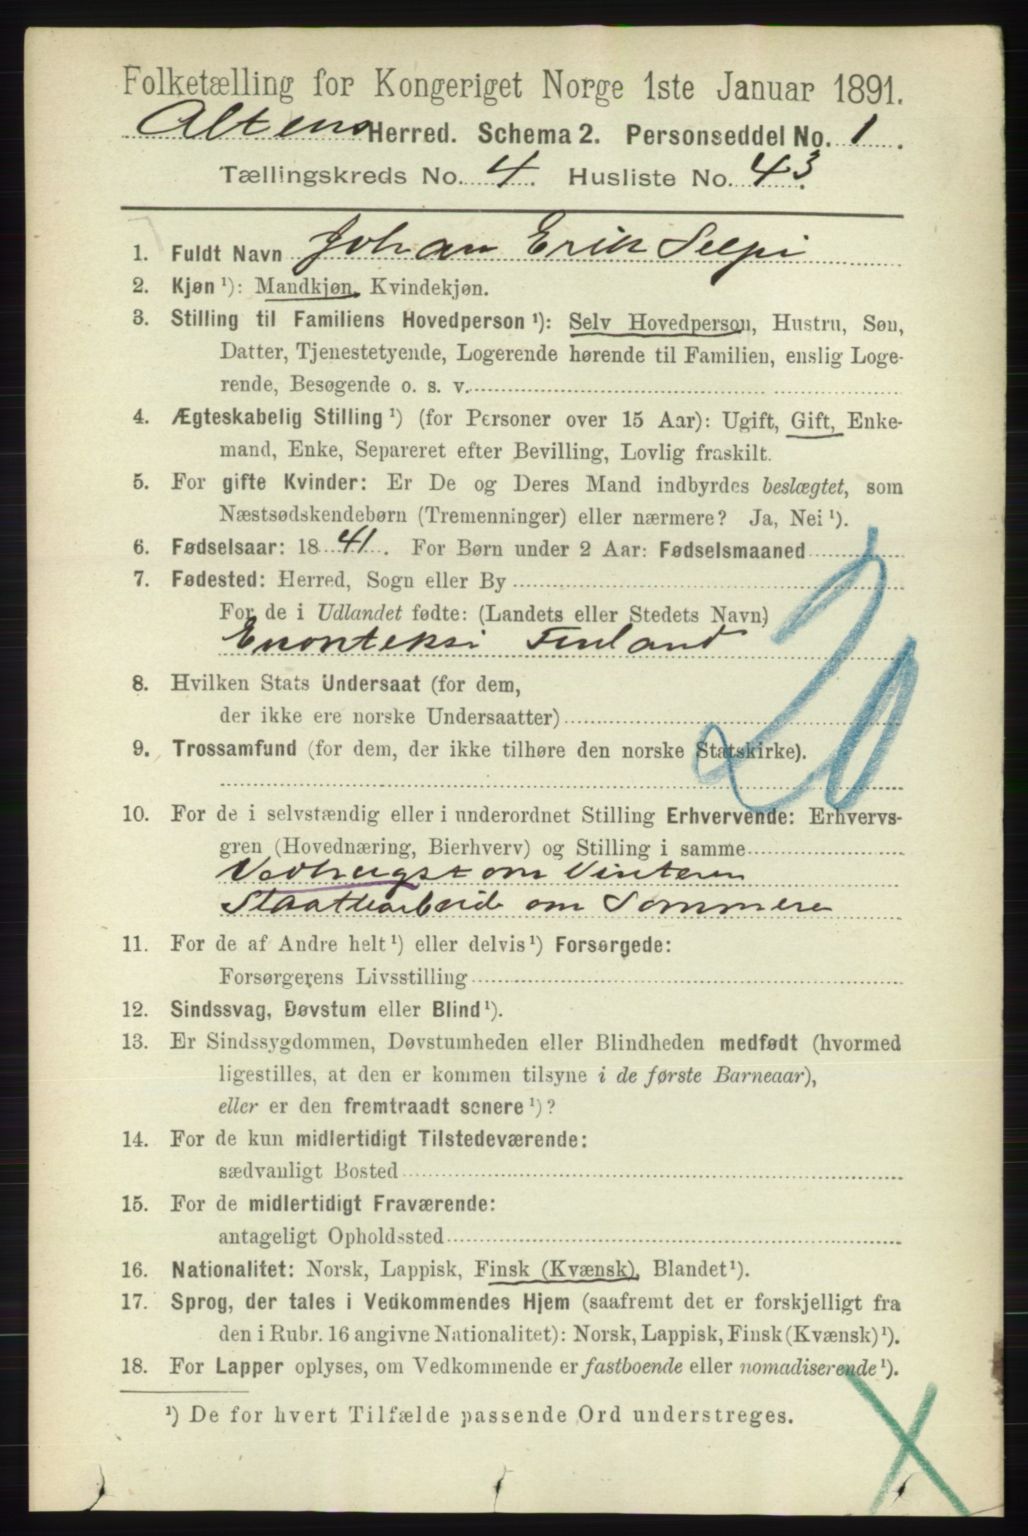 Folketælling for Kongeriget Norge 1ste Januar 1891.
Altens Herred. Schema 2. Personseddel No. 1.
Tællingskreds No. 4. Husliste No. 43.
1. Fuldt Navn Johan Erik Seepi
2. Kjøn ¹): Mandkjøn, Kvindekjøn.
3. Stilling til Familiens Hovedperson ¹): Selv Hovedperson, Hustru, Søn,
Datter, Tjenestetyende, Logerende hørende til Familien, enslig Loge-
rende, Besøgende o. s. v.
4. Ægteskabelig Stilling ¹) (for Personer over 15 Aar): Ugift, Gift, Enke-
mand, Enke, Separeret efter Bevilling, Lovlig fraskilt.
5. For gifte Kvinder: Er De og Deres Mand indbyrdes beslægtet, som
Næstsødskendebørn (Tremenninger) eller nærmere? Ja, Nei ¹).
6. Fødselsaar: 1841. For Børn under 2 Aar: Fødselsmaaned
7. Fødested: Herred, Sogn eller By
For de i Udlandet fødte: (Landets eller Stedets Navn)
Enonteksi Finland
20
8. Hvilken Stats Undersaat (for dem,
der ikke ere norske Undersaatter)
9. Trossamfund (for dem, der ikke tilhøre den norske Statskirke).
10. For de i selvstændig eller i underordnet Stilling Erhvervende: Erhvervs-
gren (Hovednæring, Bierhverv) og Stilling i samme
Vedhugst om Vinteren
om Sommeren
11. For de af Andre helt ¹) eller delvis ¹) Forsørgede:
Forsørgerens Livsstilling
12. Sindssvag, Døvstum eller Blind ¹).
13. Er Sindssygdommen, Døvstumheden eller Blindheden medfødt (hvormed
ligestilles, at den er kommen tilsyne i de første Barneaar),
eller er den fremtraadt senere ¹)?
14. For de kun midlertidigt Tilstedeværende:
sædvanligt Bosted
15. For de midlertidigt Fraværende:
antageligt Opholdssted
16. Nationalitet: Norsk, Lappisk, Finsk (Kvænsk), Blandet ¹).
17. Sprog, der tales i Vedkommendes Hjem (saafremt det er forskjelligt fra
den i Rubr. 16 angivne Nationalitet): Norsk, Lappisk, Finsk (Kvænsk) ¹).
18. For Lapper oplyses, om Vedkommende er fastboende eller nomadiserende ¹).
¹) De for hvert Tilfælde passende Ord understreges.